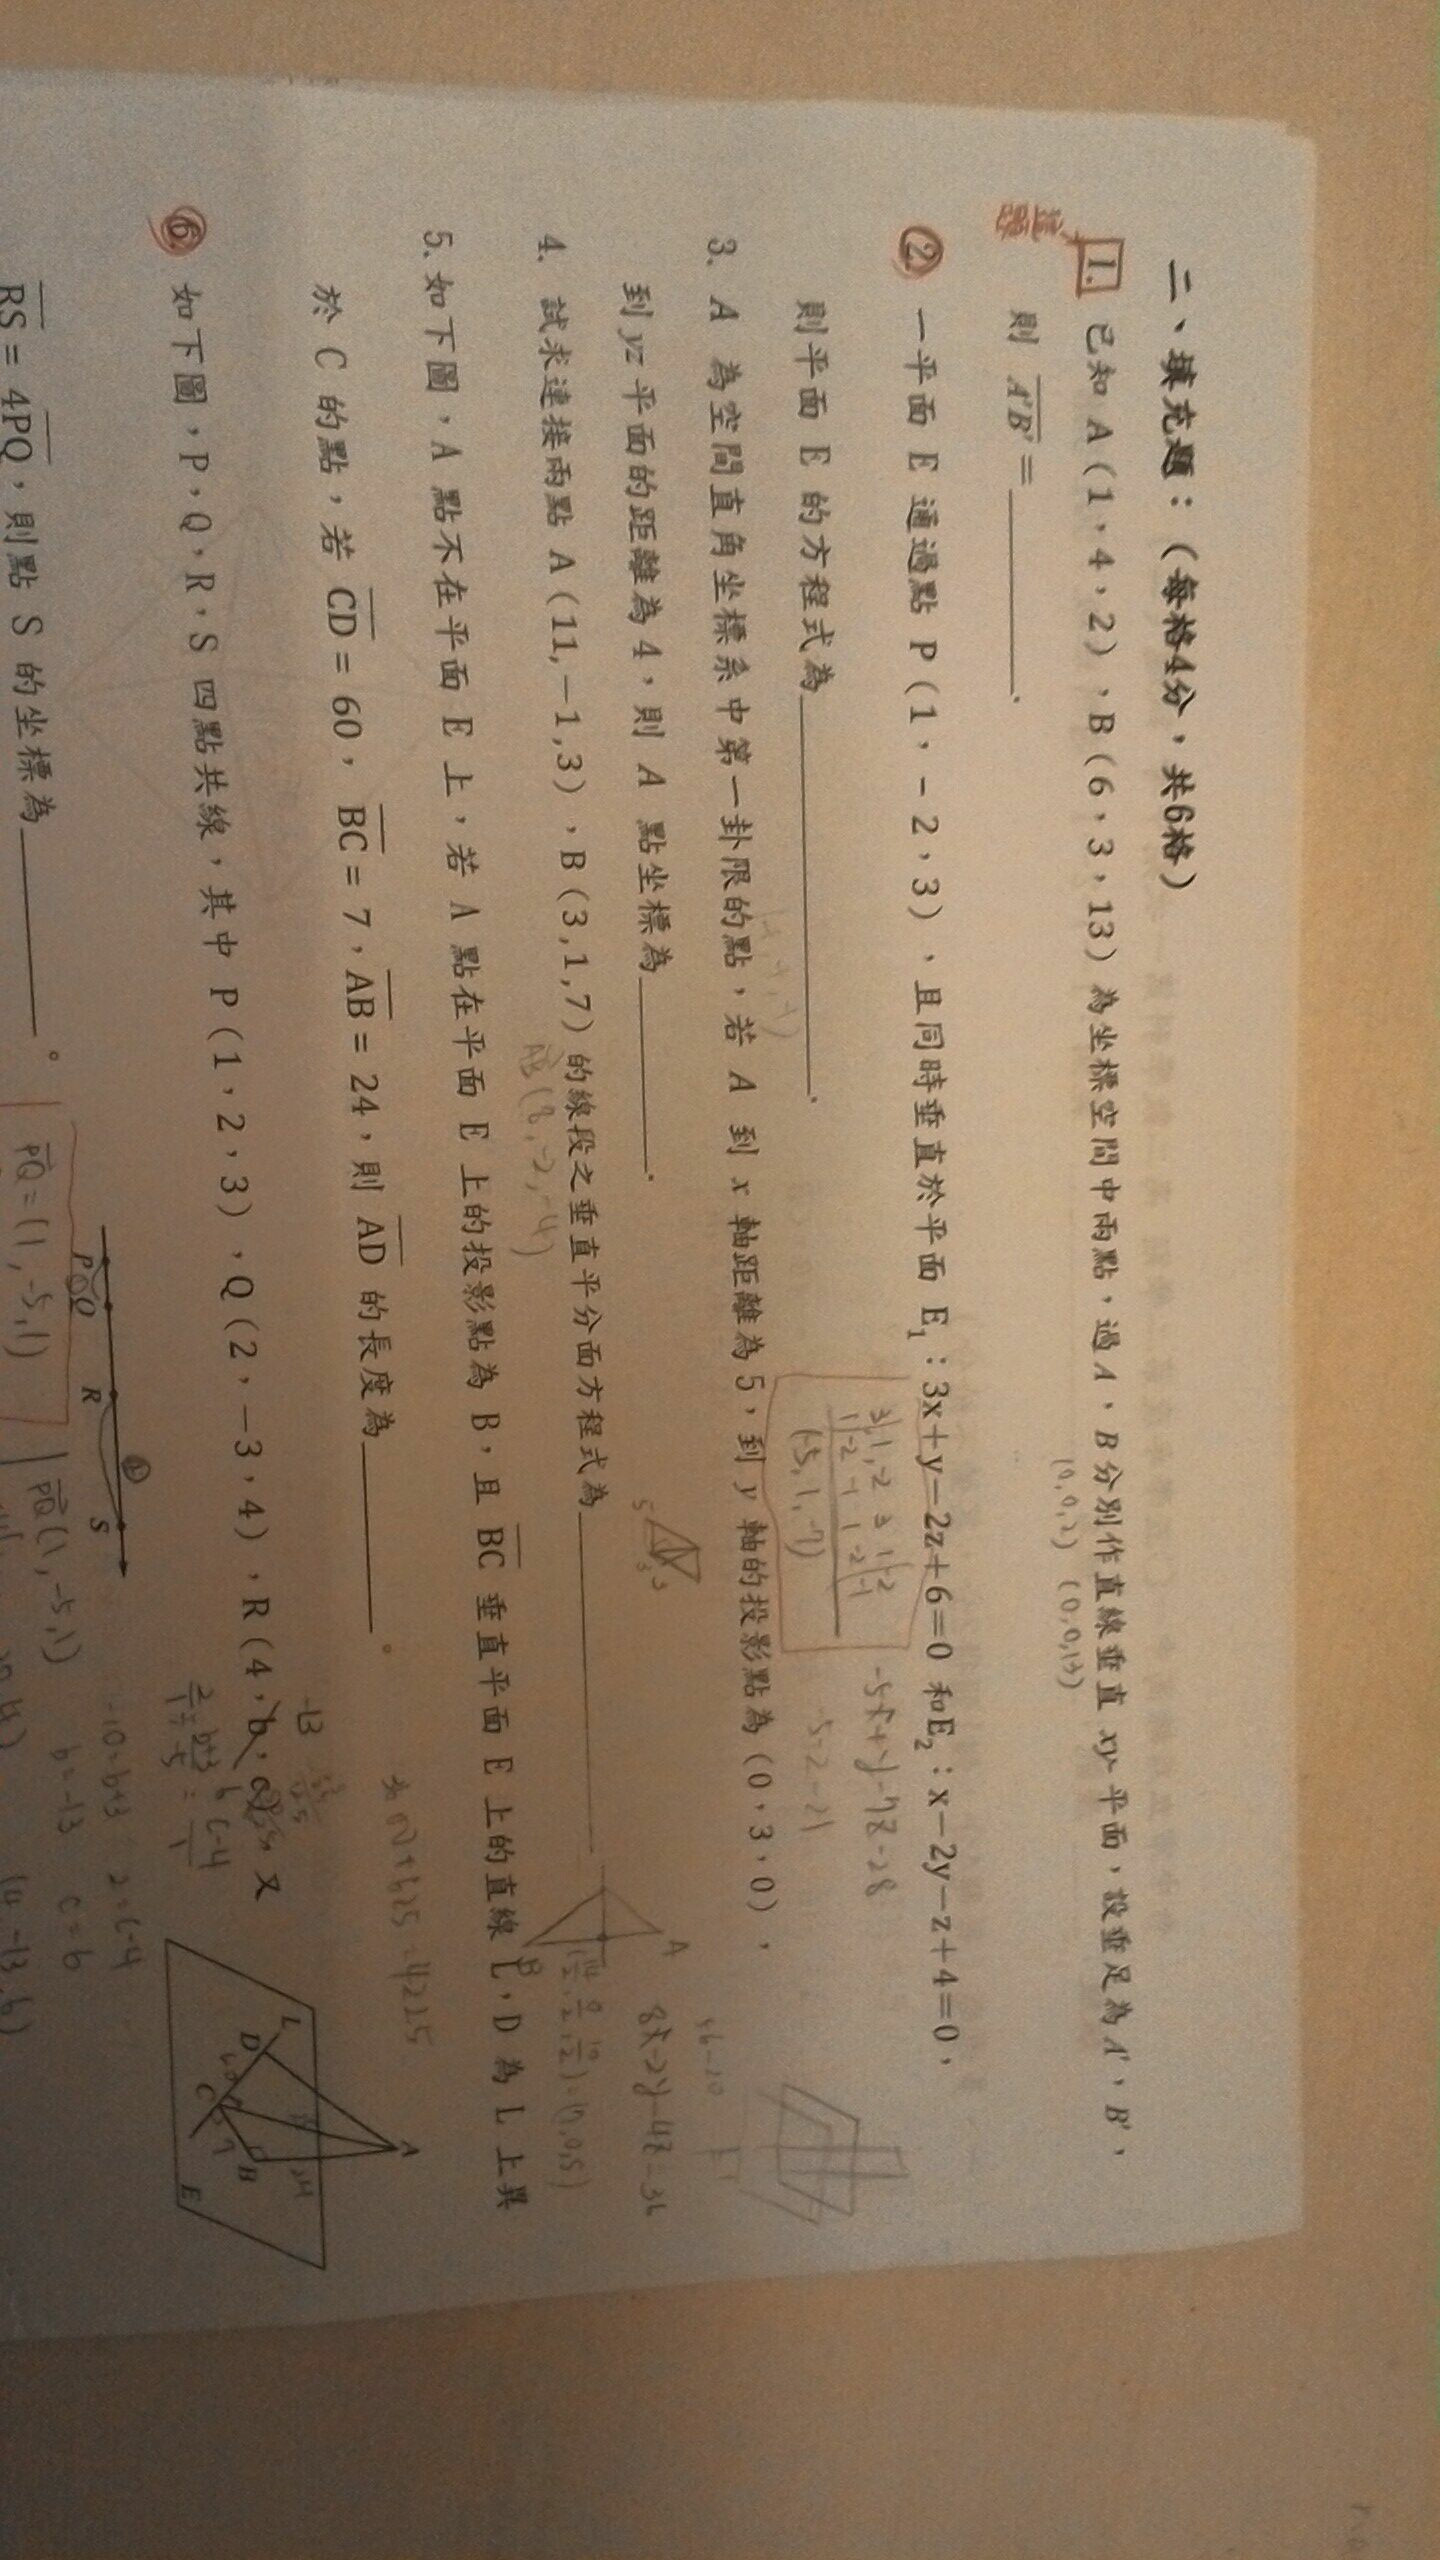 二、填充題：(每格4分，共6格)
1. 已知 A(1，4，2)、B(6，3，13) 為坐標空間中兩點，過 A、B 分別作直線垂直 xy 平面，設垂足為 A'、B'，
(0,0,2) (0,0,13)
則 A'B' = ________.
② 一平面 E 通過點 P(1，-2，3)、且同時垂直於平面 E₁：3x+y-2z+6=0 和E₂：x-2y-z+4=0，
3 1 -2 3 1 -2
1 -2 -1 1 -2 -1
(-5, 1, -7)
-5x+y-7z-28
-5-2-21
則平面 E 的方程式為________.
3. A 為空間直角坐標系中第一卦限的點，若 A 到 x 軸距離為 5，到 y 軸的投影點為 (0，3，0)，
到 yz 平面的距離為 4，則 A 點坐標為________.
8x-2y-4z-36
4. 試求連接兩點 A(11,-1,3)、B(3,1,7) 的線段之垂直平分面方程式為________
AB (8,-2,-4)
A
B
5. 如下圖，A 點不在平面 E 上，若 A 點在平面 E 上的投影點為 B，且 BC 垂直平面 E 上的直線 L，D 為 L 上異
於 C 的點，若 CD = 60，BC = 7，AB = 24，則 AD 的長度為________。
L
D
C
B
A
E
7
24
⑥ 如下圖，P，Q，R，S 四點共線，其中 P(1，2，3)、Q(2，-3，4)、R(4，b，c)，又
-13
RS = 4PQ，則點 S 的坐標為________。
P Q R S
④
PQ = (1,-5,1)
PQ (1,-5,1)
-10=b+3 2=c-4
b=-13 c=6